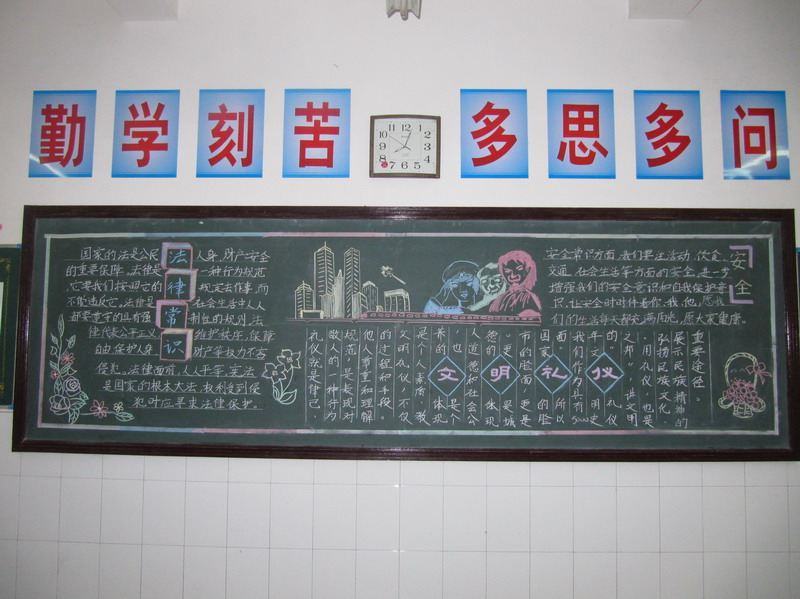 勤学刻苦
多思多问
法律常识
国家的法是公民人身、财产安全
的重要保障。法律是一种行为规范
它要我们按照它的规定去作事，而
不能违反它。法律是在社会生活中人人
都要遵守的具有强制性的规则。法
律代表公平正义维护秩序，保障
自由保护人身财产等权力不容
侵犯。法律面前，人人平等。宪法
是国家的根本大法，权利受到侵
犯时应寻求法律保护。
安全
安全常识方面，我们要注活动、饮食、
交通、在会生活等方面的安全。进一步
增强我们的安全意识和自我保护意
识。让安全时时伴着你、我、他。愿我
们的生活每天都充满阳光。愿大家健康。
文明礼仪
重要途径。
展示民族精神的
弘扬民族文化、
用礼仪，也是
之邦”，讲文明
礼仪
年文明史
我们作为具有5000
面，所以
国家的脸
市的脸面，更是
更是城
德的体现
人道德和社会公
也是个
养的体现
是个人素质、教
文明礼仪，不仅
的过程和手段。
他人尊重和理解
规范，是表现对
敬人的一种行为
礼仪就是律己、